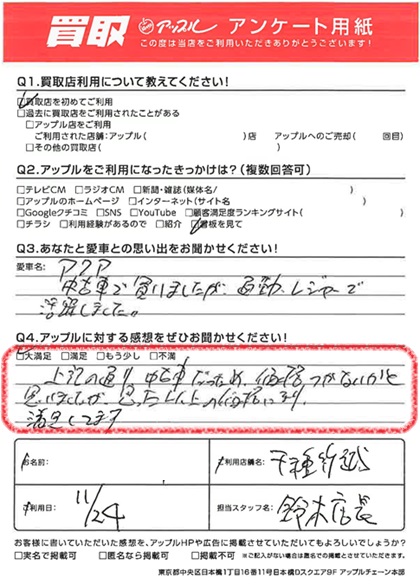 買取 アップル アンケート用紙
この度は当店をご利用いただきありがとうございます!
Q1.買取店利用について教えてください!
☑買取店を初めてご利用
□過去に買取店をご利用されたことがある
□アップル店をご利用
ご利用された店舗:アップル( )店 アップルへのご売却( 回目)
□その他の買取店( )
Q2.アップルをご利用になったきっかけは?(複数回答可)
□テレビCM □ラジオCM □新聞・雑誌(媒体名/ )
□アップルのホームページ □インターネット(サイト名 )
□Googleクチコミ □SNS □YouTube □顧客満足度ランキングサイト( )
□チラシ □利用経験があるので □紹介 ☑看板を見て
Q3.あなたと愛車との思い出をお聞かせください!
愛車名: アクア
中古車で買いましたが、通勤、レジャーで
活躍しました。
Q4.アップルに対する感想をぜひお聞かせください!
□大満足 □満足 □もう少し □不満
上記の通り中古車だったため、価格つかないかと
思いましたが、思った以上の価格になり、
満足してます
お名前:
ご利用店舗名: 千種
ご利用日: 11/24
担当スタッフ名: 鈴木店長
お客様に書いていただいた感想を、アップルHPや広告に掲載させていただいてもよろしいでしょうか?
□実名で掲載可 □匿名なら掲載可 □掲載不可 ※ご記入がない場合は匿名での掲載とさせていただきます。
東京都中央区日本橋1丁目16番11号日本橋Dスクエア9F アップルチェーン本部